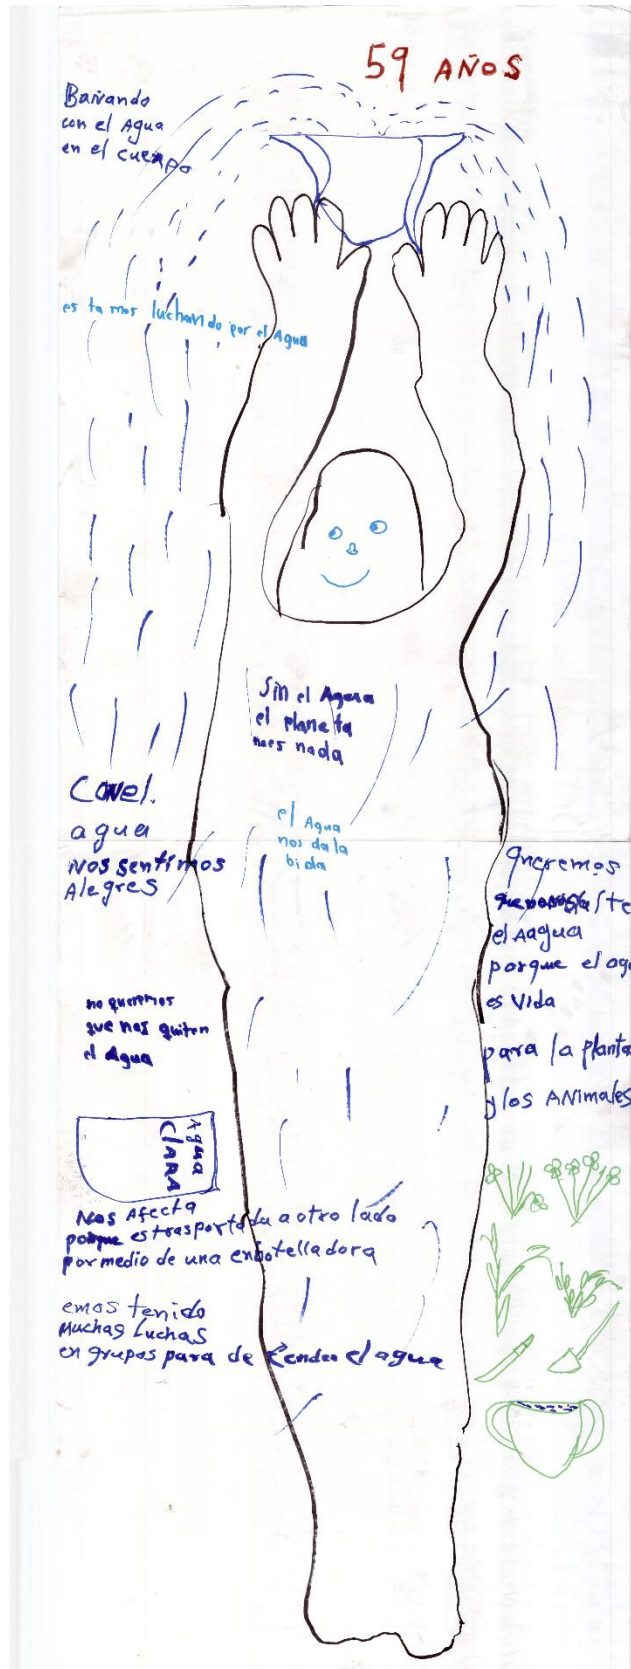 59 AÑOS
Bañando
con el Agua
en el cuerpo
es ta mos luchando por el Agua
Sin el Agua
el planeta
no es nada
Con el.
agua
Nos sentimos
Alegres
el Agua
nos da la
bida
queremos
el Aagua
porque el agu
es Vida
para la planta
y los ANimales
no queremos
que nos quiten
el Agua
Agua
ClARA
Nos Afecta
porque es trasportada a otro lado
por medio de una enbotelladora
emos tenido
Muchas Luchas
en grupos para de fender el agua